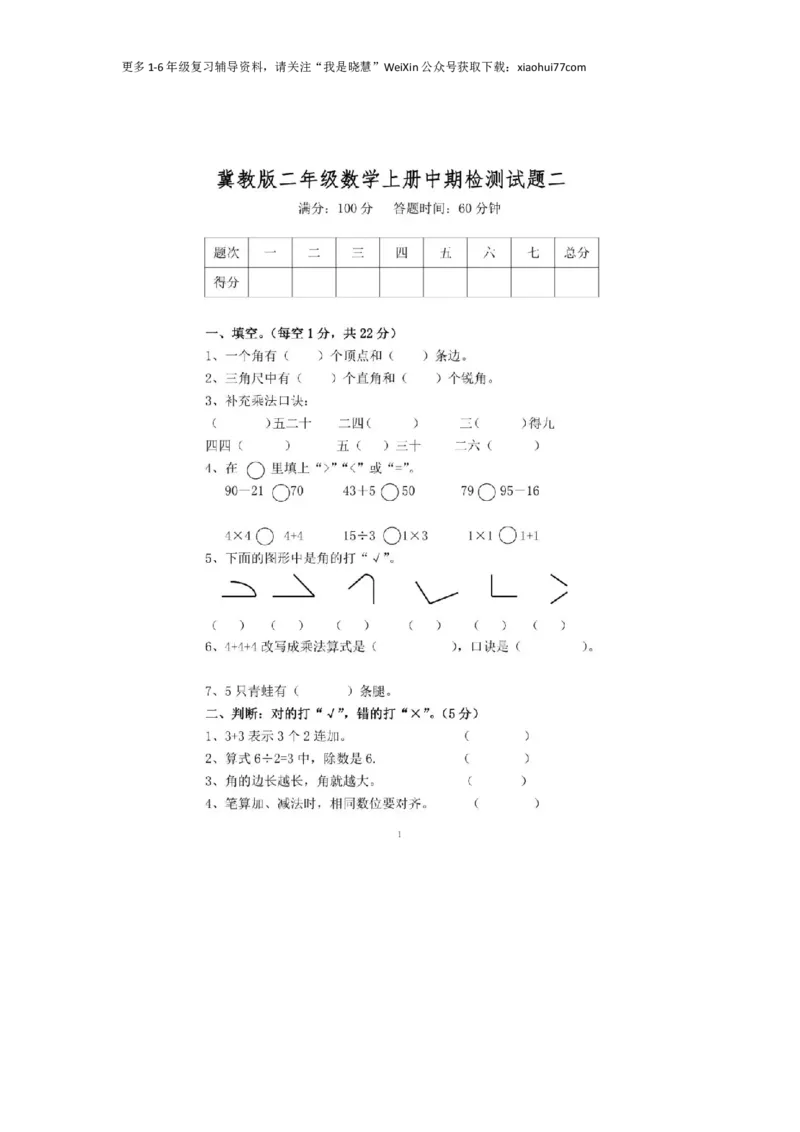 更多 1-6 年级复习辅导资料，请关注“我是晓慧”WeiXin 公众号获取下载：xiaohui77com
冀教版二年级数学上册中期检测试题二
满分：100分 答题时间：60分钟
题次 一 二 三 四 五 六 七 总分
得分
一、填空。（每空1分，共22分）
1、一个角有（ ）个顶点和（ ）条边。
2、三角尺中有（ ）个直角和（ ）个锐角。
3、补充乘法口诀：
（ ）五二十 二四（ ） 三（ ）得九
四四（ ） 五（ ）三十 二六（ ）
4、在 ○ 里填上“>”“<”或“=”。
90－21 ○70 43＋5 ○ 50 79 ○ 95－16
4×4 ○ 4+4 15÷3 ○1×3 1×1 ○ 1+1
5、下面的图形中是角的打“√”。
（ ） （ ） （ ） （ ） （ ） （ ）
6、4+4+4改写成乘法算式是（ ），口诀是（ ）。
7、5只青蛙有（ ）条腿。
二、判断：对的打“√”，错的打“×”。（5分）
1、3+3表示3个2连加。 （ ）
2、算式6÷2=3中，除数是6. （ ）
3、角的边长越长，角就越大。 （ ）
4、笔算加、减法时，相同数位要对齐。 （ ）
1